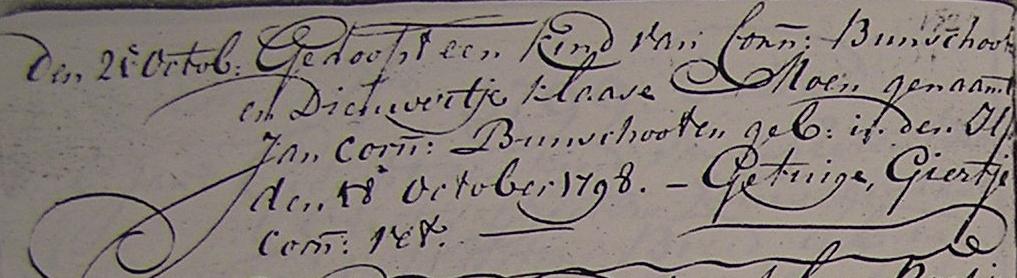 Den 21e Octob: Gedoopt een kind van Corn: Bunschoot
en Dieuwertje Klaase Moen genaamt
Jan Corn: Bunschooten geb: in den Ilp
den 18e October 1798. – Getuige, Giertje
Corn: Vet.